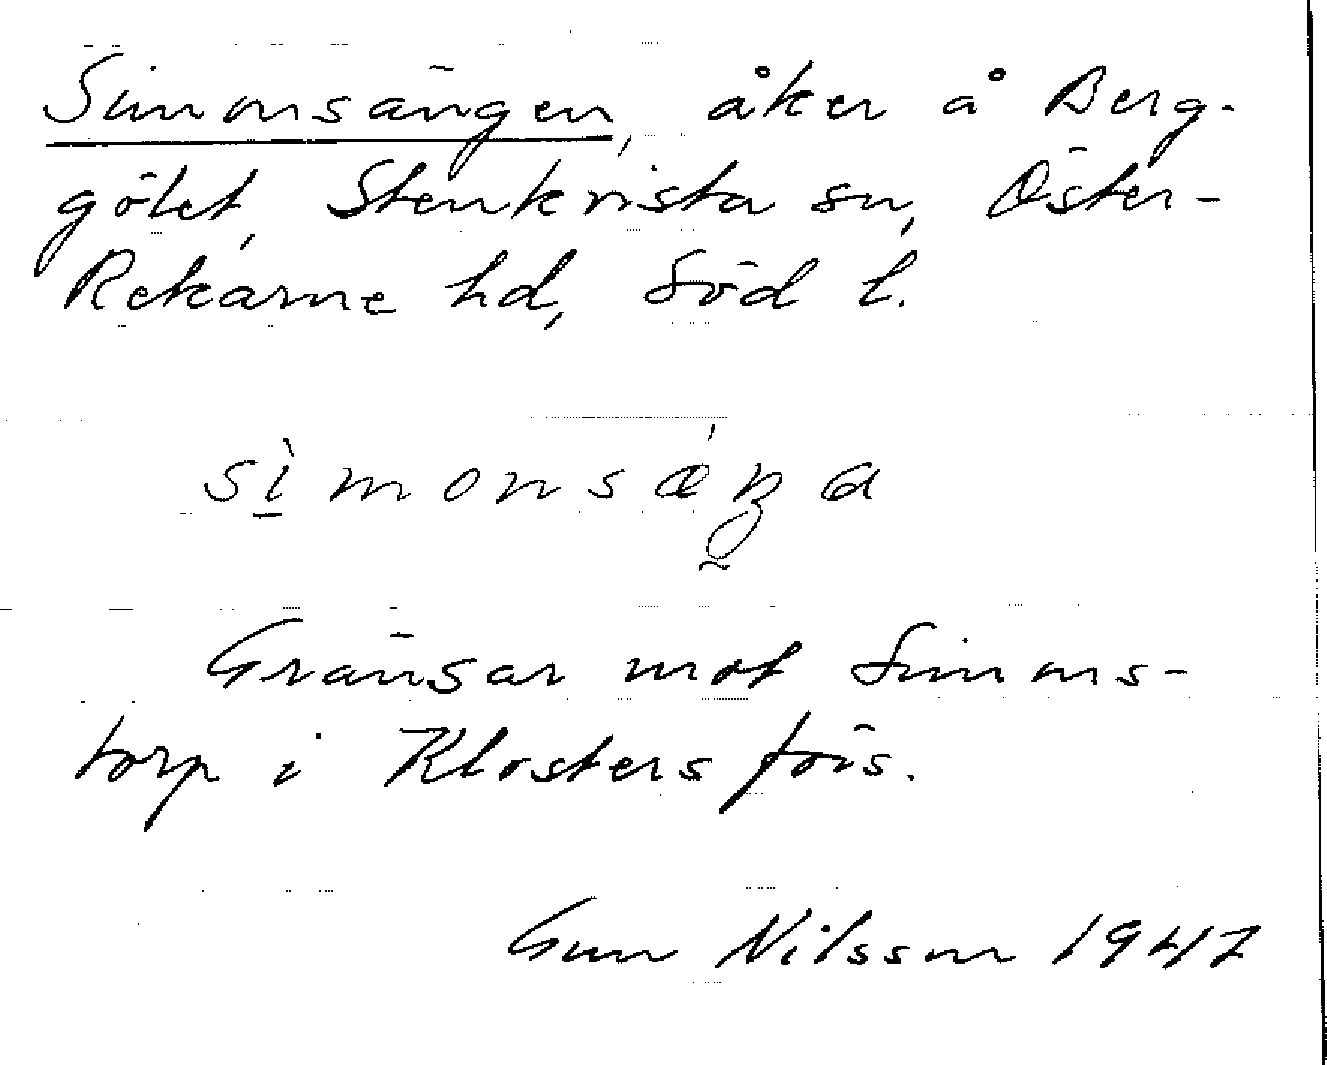 Simonsängen, åker å Berg-
gölet, Stenkvista sn, Öster-
Rekarne hd, Söd l.
sìmonsǽŋa
Gränsar mot Simons-
torp i Klosters förs.
Gun Nilsson 1947